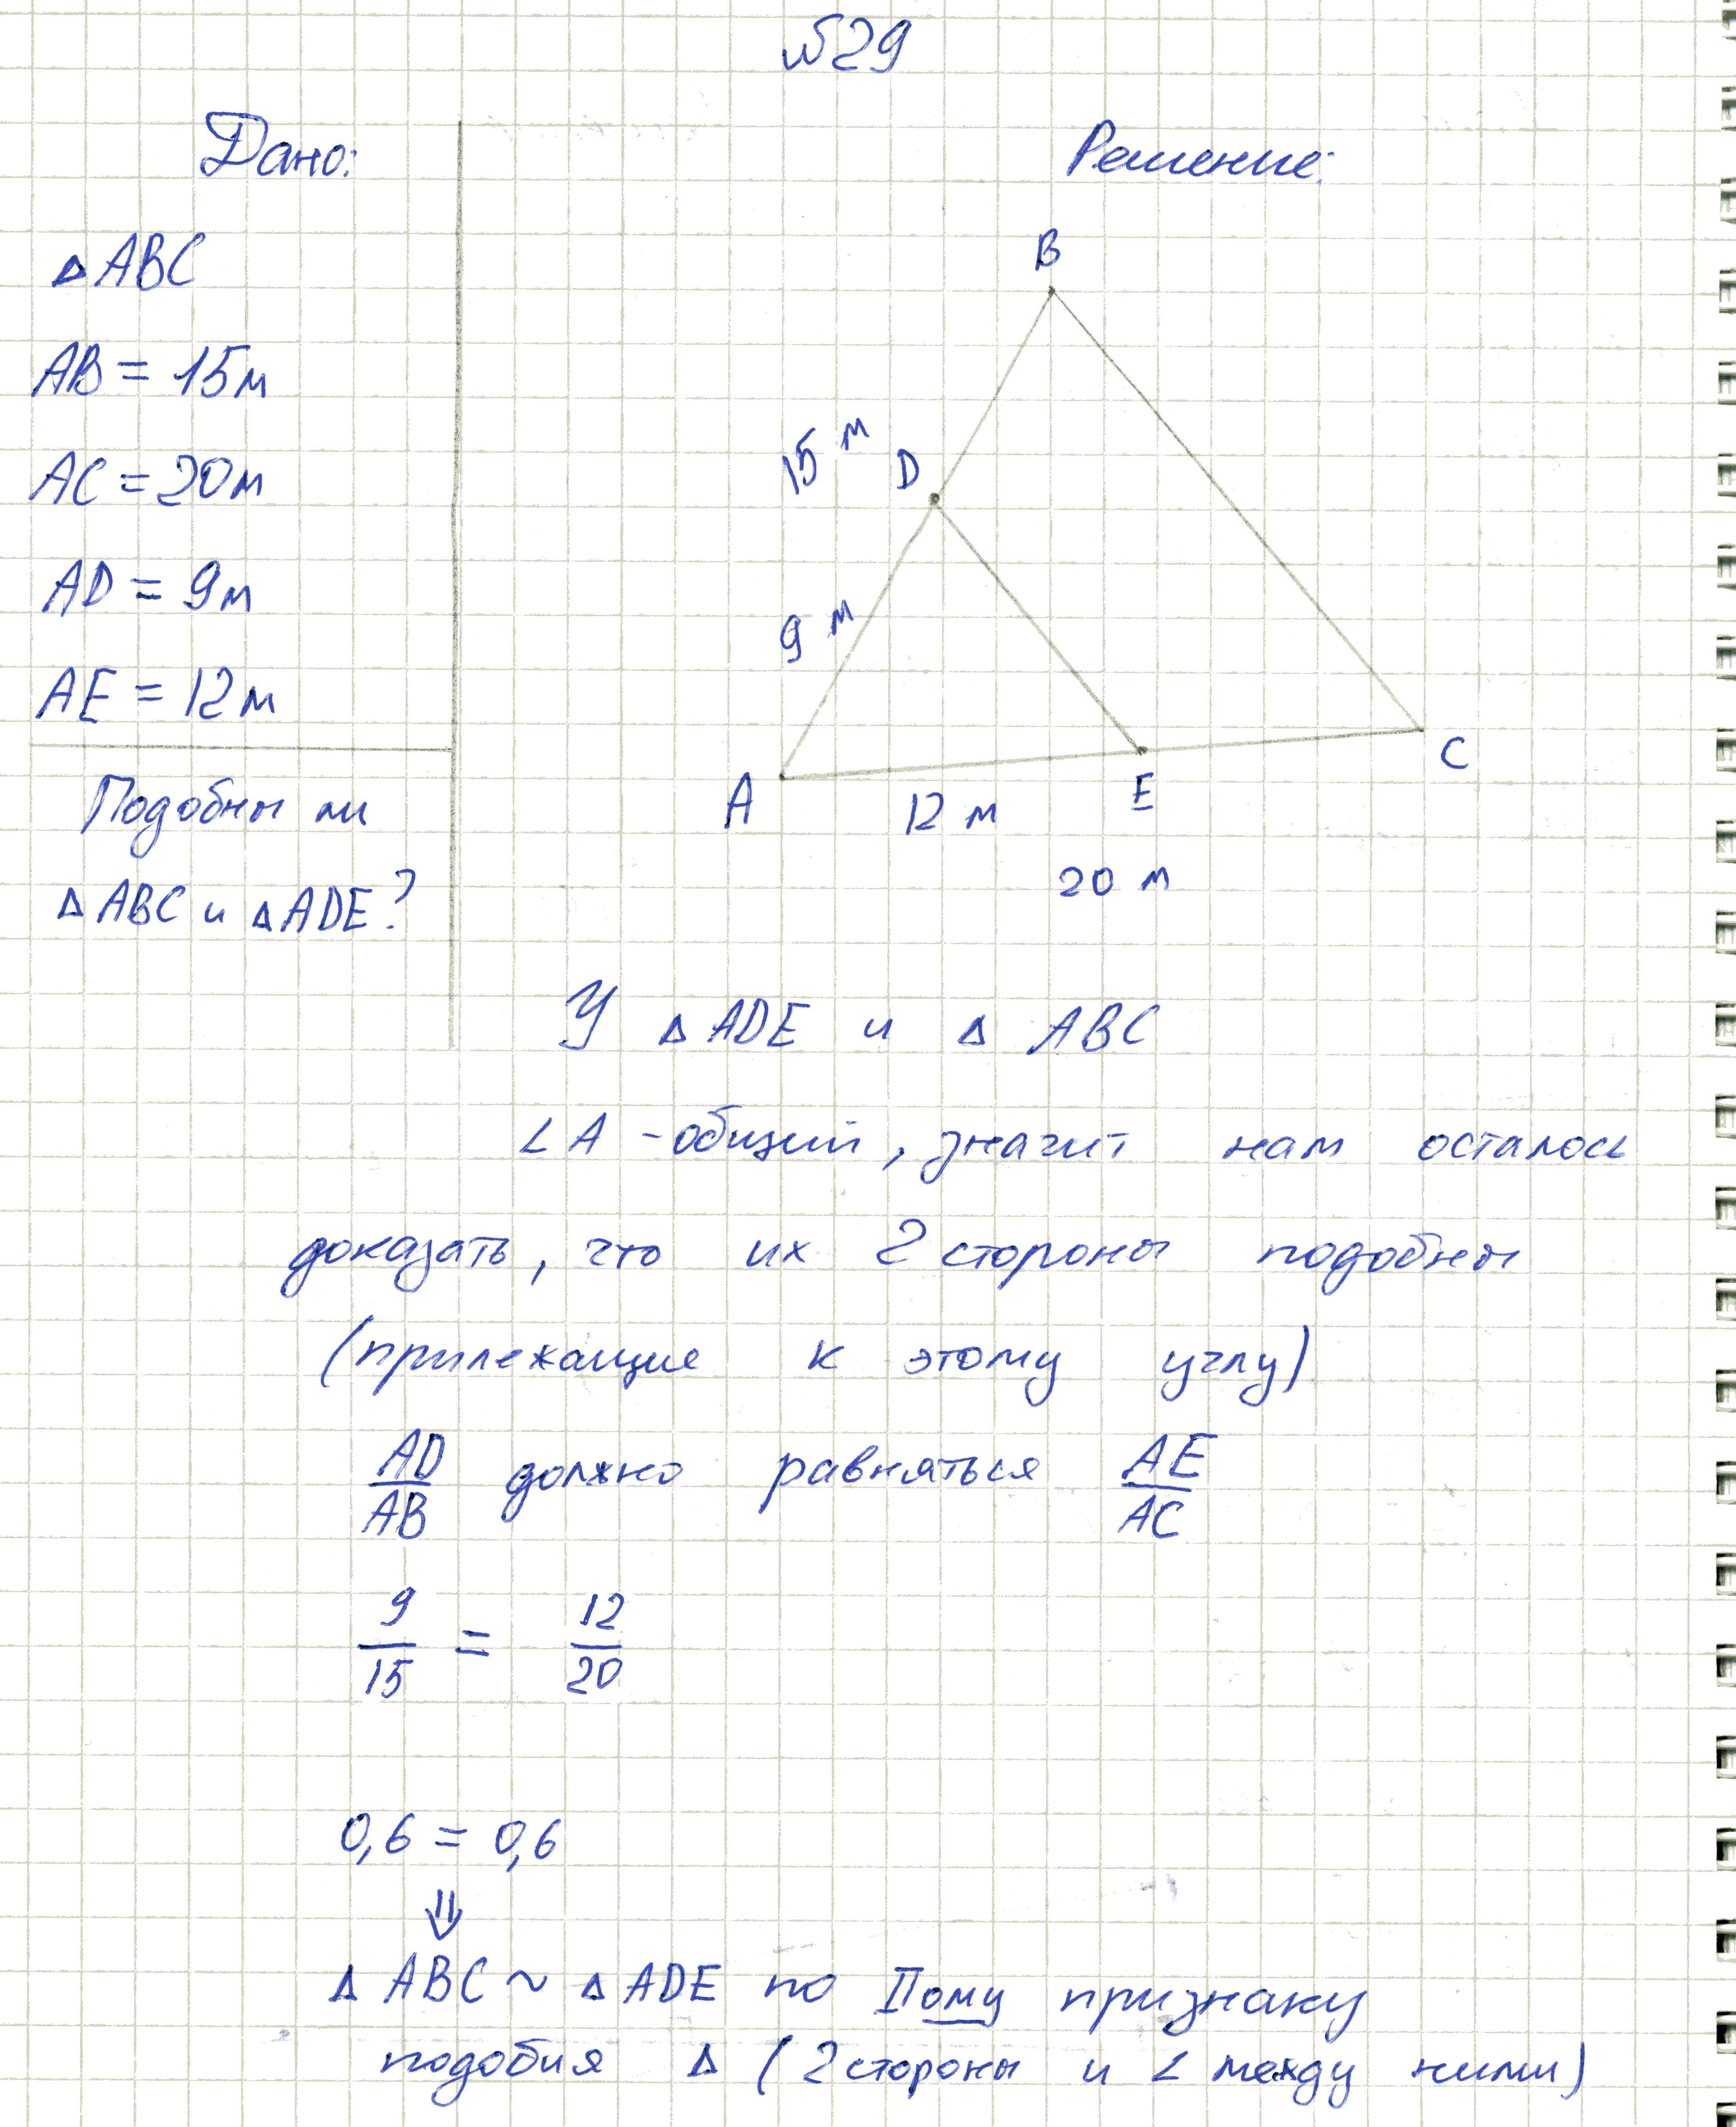 №29
Дано:
△ABC
AB = 15м
AC = 20м
AD = 9м
AE = 12м
Подобны ли
△ABC и △ADE?
Решение:
B
15 м
D
9 м
A
12 м
E
C
20 м
У △ADE и △ ABC
∠A - общий, значит нам осталось
доказать, что их 2 стороны подобны
(прилежащие к этому углу)
AD/AB должно равняться AE/AC
9/15 = 12/20
0,6 = 0,6
⇓
△ ABC ~ △ADE по IIому признаку
подобия △ (2 стороны и ∠ между ними)